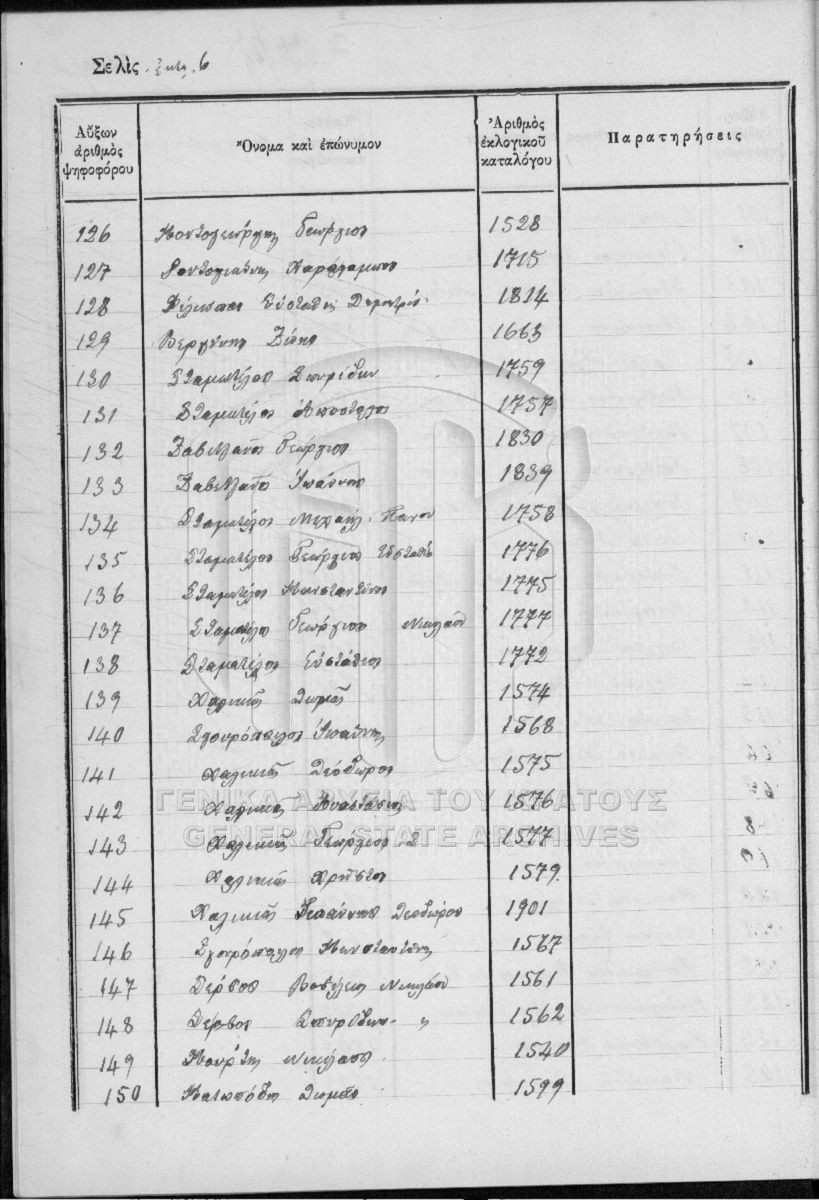 Σελὶς 6
Αὔξων ἀριθμὸς ψηφοφόρου Ὄνομα καὶ ἐπώνυμον Ἀριθμὸς ἐκλογικοῦ καταλόγου Παρατηρήσεις
126 Κοντογεώργης Γεώργιος 1528
127 Κοντογιάννης Χαράλαμπος 1715
128 Φίλιππας Εὐστάθιος Δημητρίου 1814
129 Βεργίνης Ζώης 1663
130 Σταματέλος Σπυρίδων 1759
131 Σταματέλος Ἀπόστολος 1757
132 Ζαβιτσάνος Γεώργιος 1830
133 Ζαβιτσάνος Ἰωάννης 1839
134 Σταματέλος Μιχαήλ Πάνου 1758
135 Σταματέλος Γεώργιος Εὐσταθίου 1776
136 Σταματέλος Κωνσταντῖνος 1775
137 Σταματέλος Γεώργιος Νικολάου 1777
138 Σταματέλος Εὐστάθιος 1772
139 Χαλικιᾶς Θωμᾶς 1574
140 Σγουρόπουλος Ἰωάννης 1568
141 Χαλικιᾶς Θεόδωρος 1575
142 Χαλικιᾶς Ἀναστάσιος 1576
143 Χαλικιᾶς Γεώργιος 1577
144 Χαλικιᾶς Χρῆστος 1579
145 Χαλικιᾶς Ἰωάννης Θεοδώρου 1901
146 Σγουρόπουλος Κωνσταντῖνος 1567
147 Δέρβος Βασίλειος Νικολάου 1561
148 Δέρβος Σπυρίδων 〃 1562
149 Κούρτης Νικόλαος 1540
150 Κατωπόδης Θωμᾶς 1599
ΓΕΝΙΚΑ ΑΡΧΕΙΑ ΤΟΥ ΚΡΑΤΟΥΣ
GENERAL STATE ARCHIVES